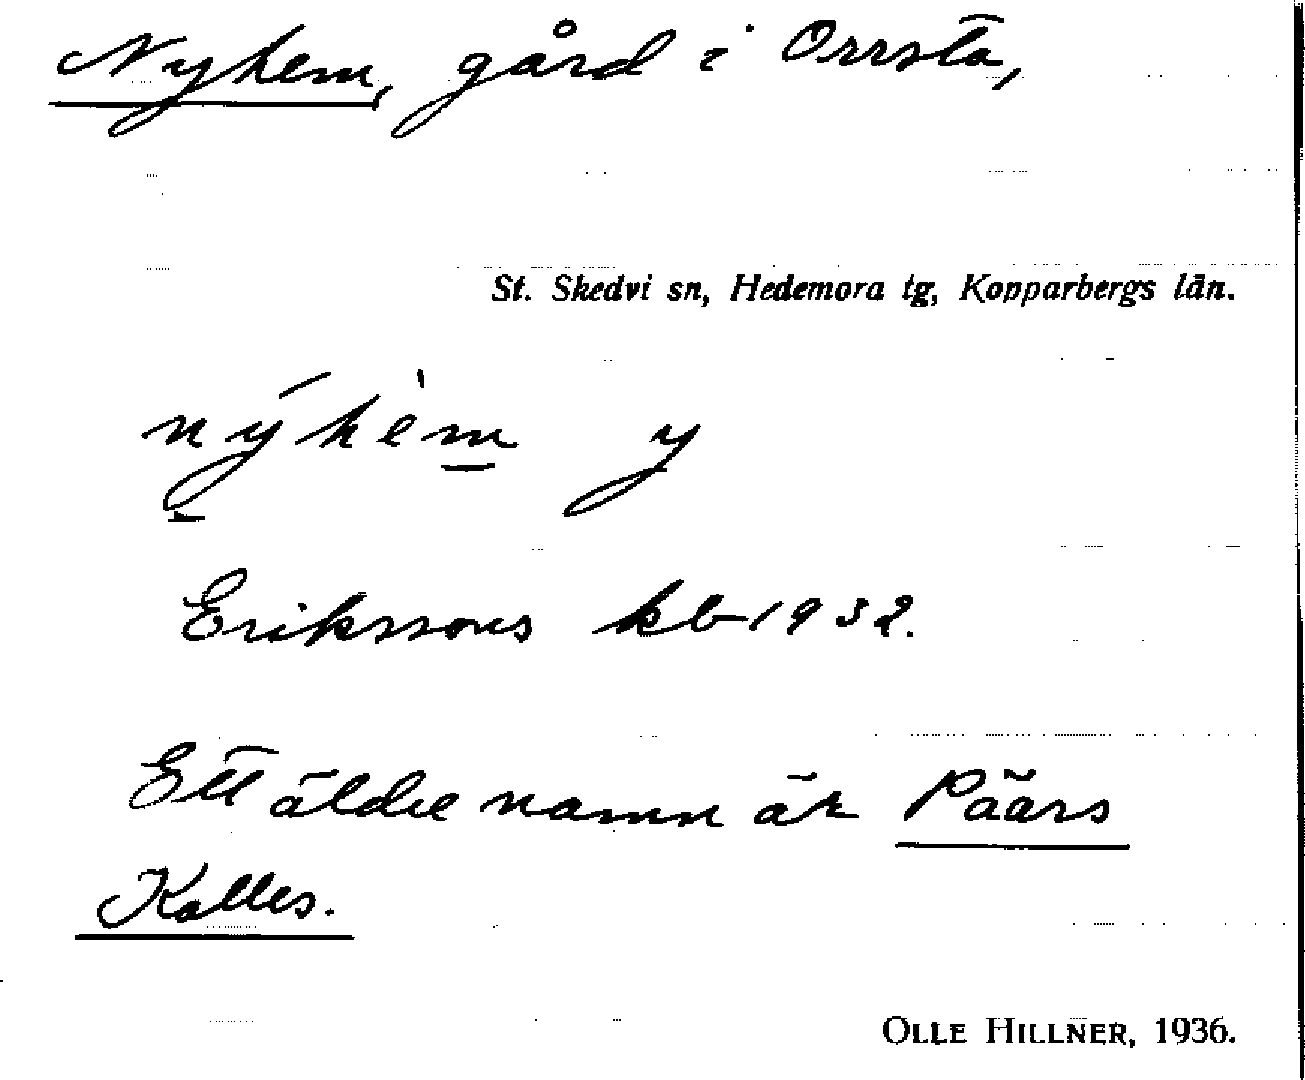 Nyhem, gård i Orrsta,
St. Skedvi sn, Hedemora tg, Kopparbergs län.
nýhèm y
Erikssons kb 1932.
Ett äldre namn är Päärs
Kalles.
OLLE HILLNER, 1936.